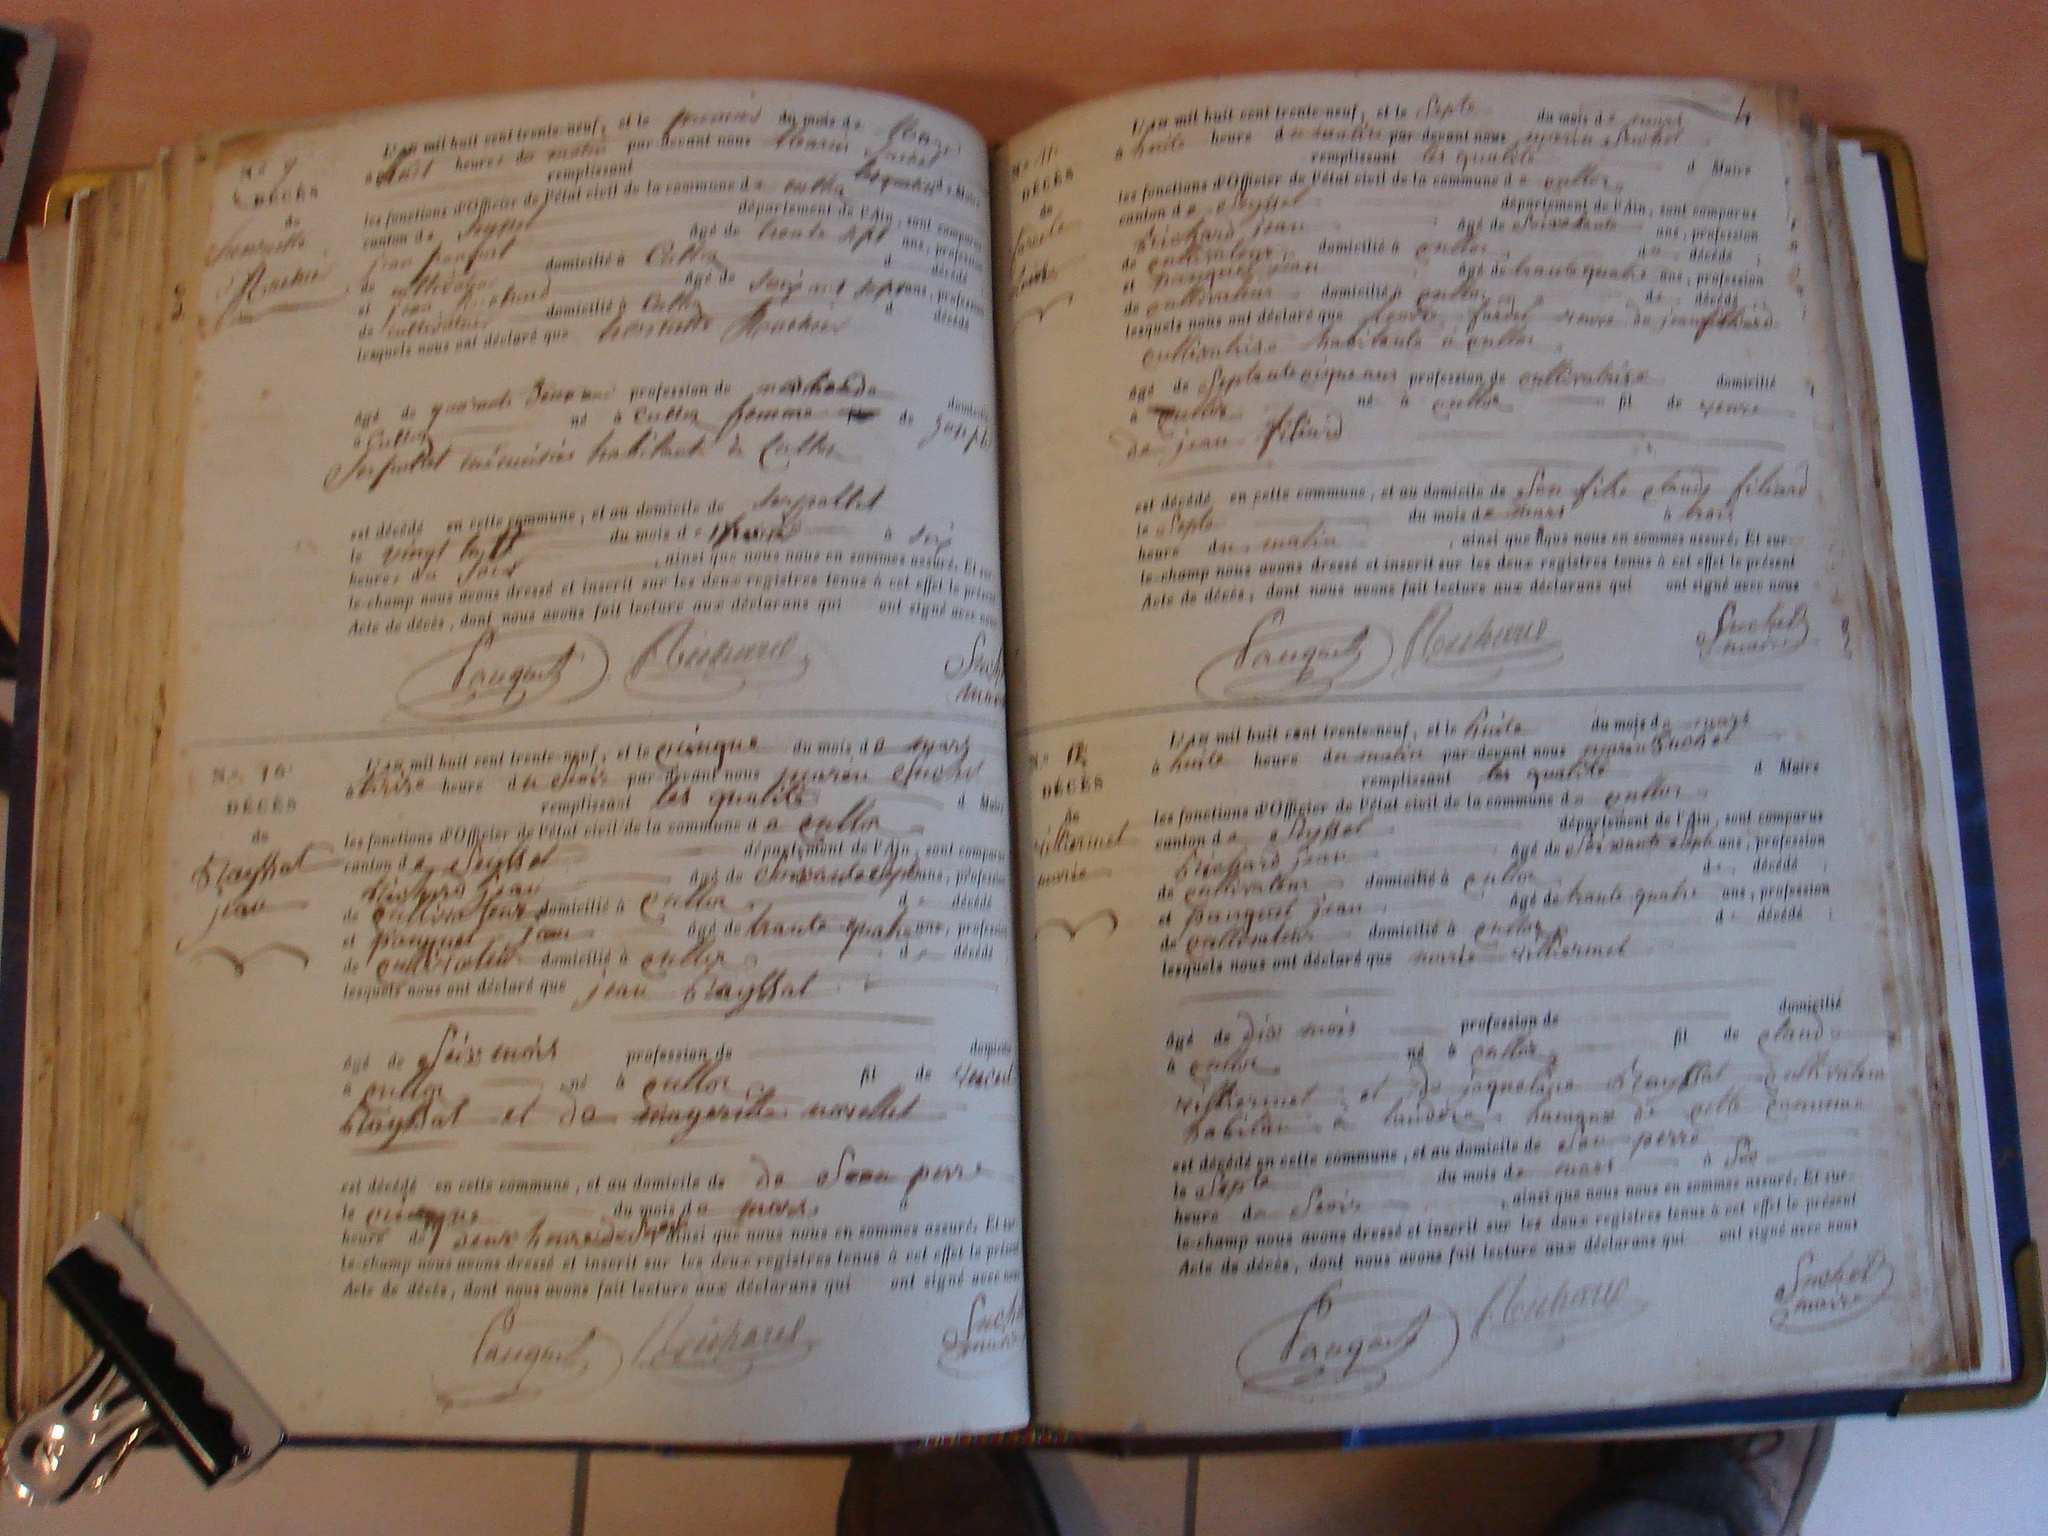 No 9
DÉCÈS
de
L'an mil huit cent trente-neuf, et le premier du mois de Mars
à huit heures du matin par devant nous Marin Suchet
remplissant de Maire
les fonctions d'Officier de l'état civil de la commune de Culloz
canton de Seyssel département de l'Ain, sont comparus
jean pauquet âgé de trente sept ans, profession
de cultivateur domicilié à Culloz d décédé
et jean Richard âgé de soixante sept ans, profession
de cultivateur domicilié à Culloz d décédé
lesquels nous ont déclaré que
âgé de quarante deux ans profession de domicilié
à Culloz né à Culloz femme de joseph
Serpollet habitant à Culloz
est décédé en cette commune, et au domicile de Serpollet
le vingt huit du mois de à six
heures du soir , ainsi que nous nous en sommes assuré. Et sur-
le-champ nous avons dressé et inscrit sur les deux registres tenus à cet effet le présent
Acte de décès, dont nous avons fait lecture aux déclarans qui ont signé avec nous
Pauquet Richard Suchet
maire
No 10
DÉCÈS
de
Brayssat
jean
L'an mil huit cent trente-neuf, et le cinque du mois de mars
à heure du soir par devant nous marin Suchet
remplissant les qualité d Maire
les fonctions d'Officier de l'état civil de la commune de culloz
canton de Seyssel département de l'Ain, sont comparus
Richard jean âgé de soixante sept ans, profession
de cultivateur domicilié à culloz d décédé
et pauquet jean âgé de trante quatre ans, profession
de cultivateur domicilié à culloz d décédé
lesquels nous ont déclaré que jean Brayssat
âgé de Seix mois profession de domicilié
à culloz né à culloz fil de
Brayssat et de magerite novellet
est décédé en cette commune, et au domicile de de Son perre
le cinque du mois de mars à
heure de deux heures de Soir ainsi que nous nous en sommes assuré. Et sur-
le-champ nous avons dressé et inscrit sur les deux registres tenus à cet effet le présent
Acte de décès, dont nous avons fait lecture aux déclarans qui ont signé avec nous
Pauquet Richard Suchet
maire
4
No 11
DÉCÈS
de
L'an mil huit cent trente-neuf, et le Septe du mois de mars
à huite heure du matin par devant nous marin Suchet
remplissant les qualité d Maire
les fonctions d'Officier de l'état civil de la commune de culloz
canton de Seyssel département de l'Ain, sont comparus
Richard jean âgé de Soixante ans, profession
de cultivateur domicilié à culloz d décédé
et pauquet jean âgé de trante quatre ans, profession
de cultivateur domicilié à culloz d décédé
lesquels nous ont déclaré que veuve de jean filiard
cultivatrise habitante à culloz
âgé de Septante cinque ans profession de cultivatrise domicilié
à culloz né à culloz fil de veuve
de jean filiard
est décédé en cette commune, et au domicile de Son fils claude filiard
le Septe du mois de mars à trois
heure du matin , ainsi que nous nous en sommes assuré. Et sur-
le-champ nous avons dressé et inscrit sur les deux registres tenus à cet effet le présent
Acte de décès, dont nous avons fait lecture aux déclarans qui ont signé avec nous
Pauquet Richard Suchet
maire
No 12
DÉCÈS
de
Vithermet
marie
L'an mil huit cent trente-neuf, et le huite du mois de mars
à huite heure du matin par devant nous marin Suchet
remplissant les qualité d Maire
les fonctions d'Officier de l'état civil de la commune de culloz
canton de Seyssel département de l'Ain, sont comparus
Richard jean âgé de Soixante sept ans, profession
de cultivateur domicilié à culloz d décédé
et pauquet jean âgé de trante quatre ans, profession
de cultivateur domicilié à culloz d décédé
lesquels nous ont déclaré que marie vithermet
âgé de dix mois profession de domicilié
à culloz né à culloz fil de claude
vithermet et de jaqueline Brayssat cultivateur
habitan à hamaux de cette commune
est décédé en cette commune, et au domicile de Son perre
le Septe du mois de mars à
heure du Soir , ainsi que nous nous en sommes assuré. Et sur-
le-champ nous avons dressé et inscrit sur les deux registres tenus à cet effet le présent
Acte de décès, dont nous avons fait lecture aux déclarans qui ont signé avec nous
Pauquet Richard Suchet
maire